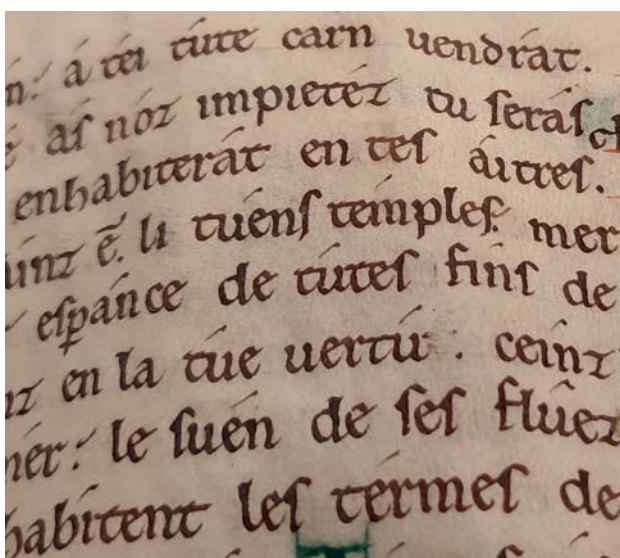 á téi túte carn uendrat.
ás nóz impietéz tu serás
enhabiterát en tes áitres.
ẽ. li túens temples. mer
espánce de tútes fins de
en la túe uertú : ceinz
le suén de ses flúez
habitent les termes de